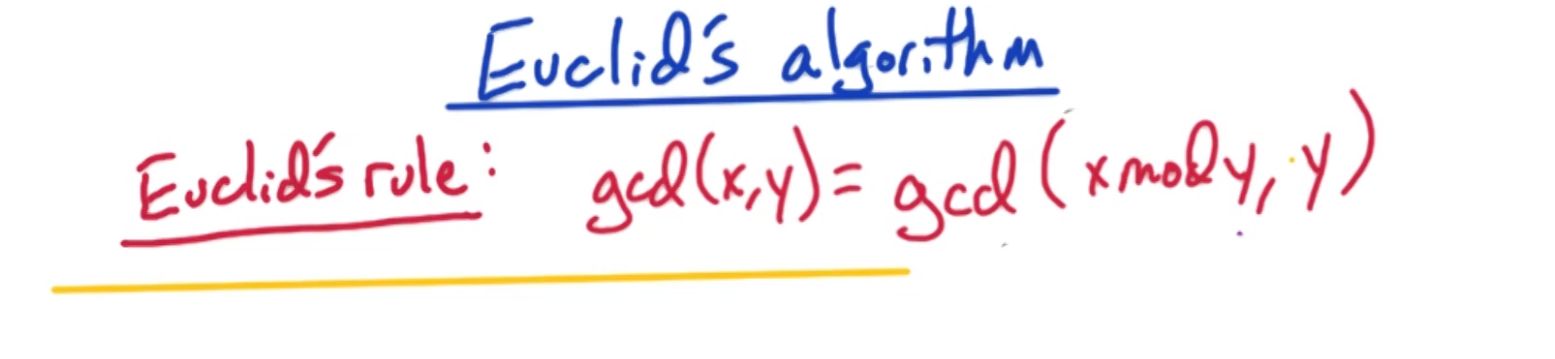 Euclid's algorithm
Euclid's rule: gcd(x,y) = gcd(x mod y, y)